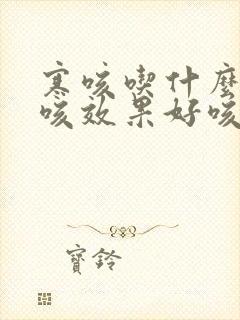 寒咳喫什麼
咳效果好咳
寶鈴